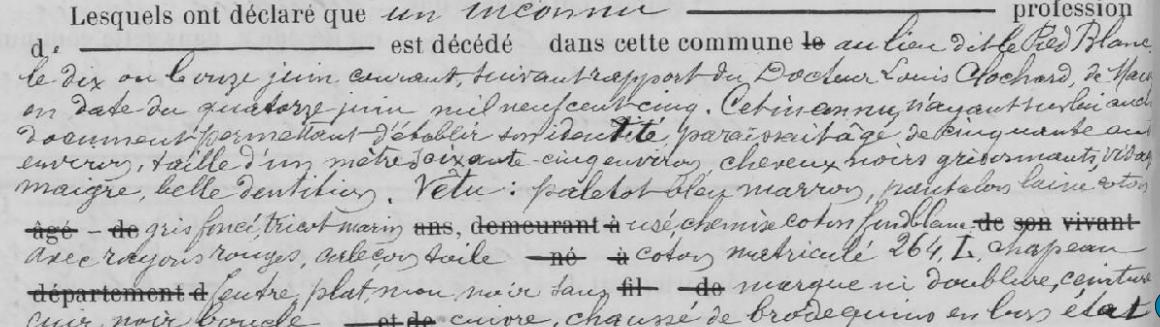 Lesquels ont déclaré que un inconnu profession
d' est décédé dans cette commune le au lieu dit le Pied Blanc
le dix ou le onze juin courant, suivant rapport du Docteur Louis Clochard, de
en date du quatorze juin mil neuf cent cinq. Cet inconnu, n'ayant sur lui aucun
document permettant d'établir son identité, paraissait âgé de cinquante ans
environ, taille d'un mètre soixante-cinq environ, cheveux noirs grisonnants, visage
maigre, belle dentition. Vêtu : paletot bleu marron, pantalon laine coton
âgé - de gris foncé, tricot marin ans, demeurant à usé, chemise coton fond blanc de son vivant
avec rayons rouges, caleçon toile né à coton matriculé 264, L, chapeau
département d feutre, plat, mou noir sans fil de marque ni doublure, ceinture
cuir noir boucle et de cuivre, chaussé de brodequins en bon état